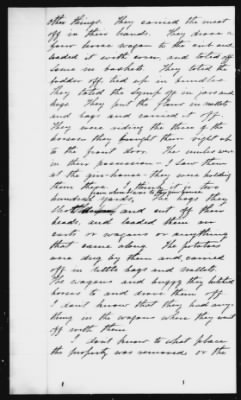 other things. They carried the meat
off in their hands. They drove a
four horse wagon to the crib and
loaded it with corn, and toted off
some in baskets. They toted the
fodder off tied up in bundles
They toted the syrup off in jars and
kegs. They put the flour in wallets
and bags and carried it off.
They were riding the three of the
horses they brought them right up
to the front door. The mules were
in their possession - I saw them
at the gin-house - they were holding
them there. I think it is two
from where I was to the gin house
hundred yards. The hogs they
shot and cut off their
heads, and loaded them in
carts or wagons or anything
that came along. The potatoes
were dug by them and carried
off in little bags and wallets.
The wagons and buggy they hitched
horses to and drove them off
I dont know that they had any
thing in the wagons when they went
off with them
I dont know to what place
the property was removed or the